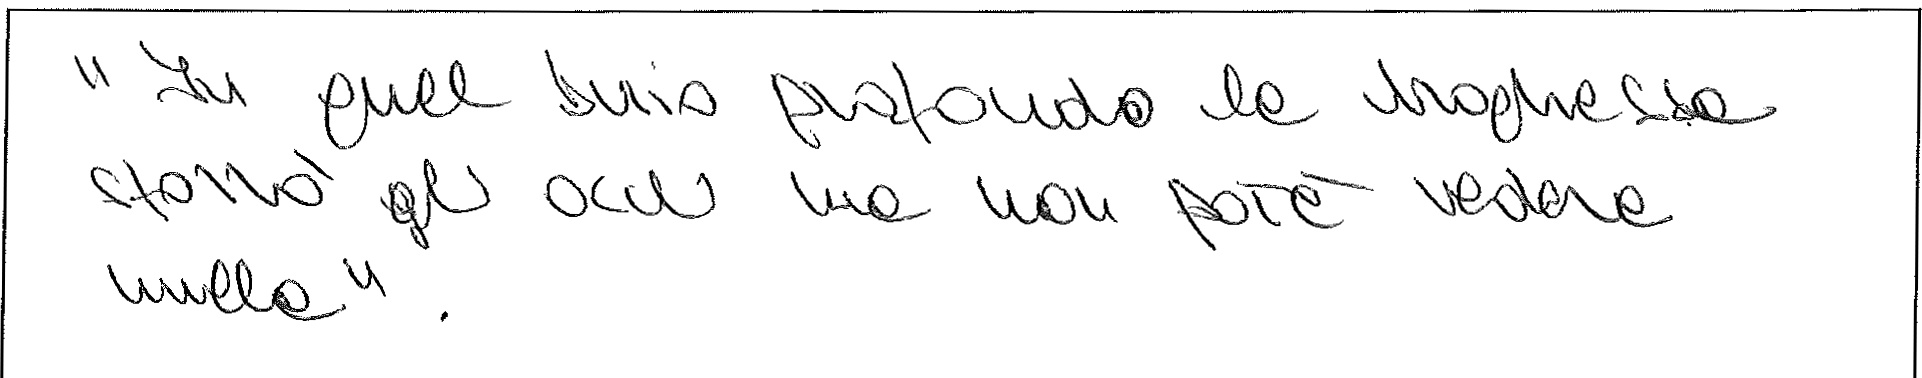 "In quel buio profondo la
sforzò gli occhi ma non poté vedere
nulla".